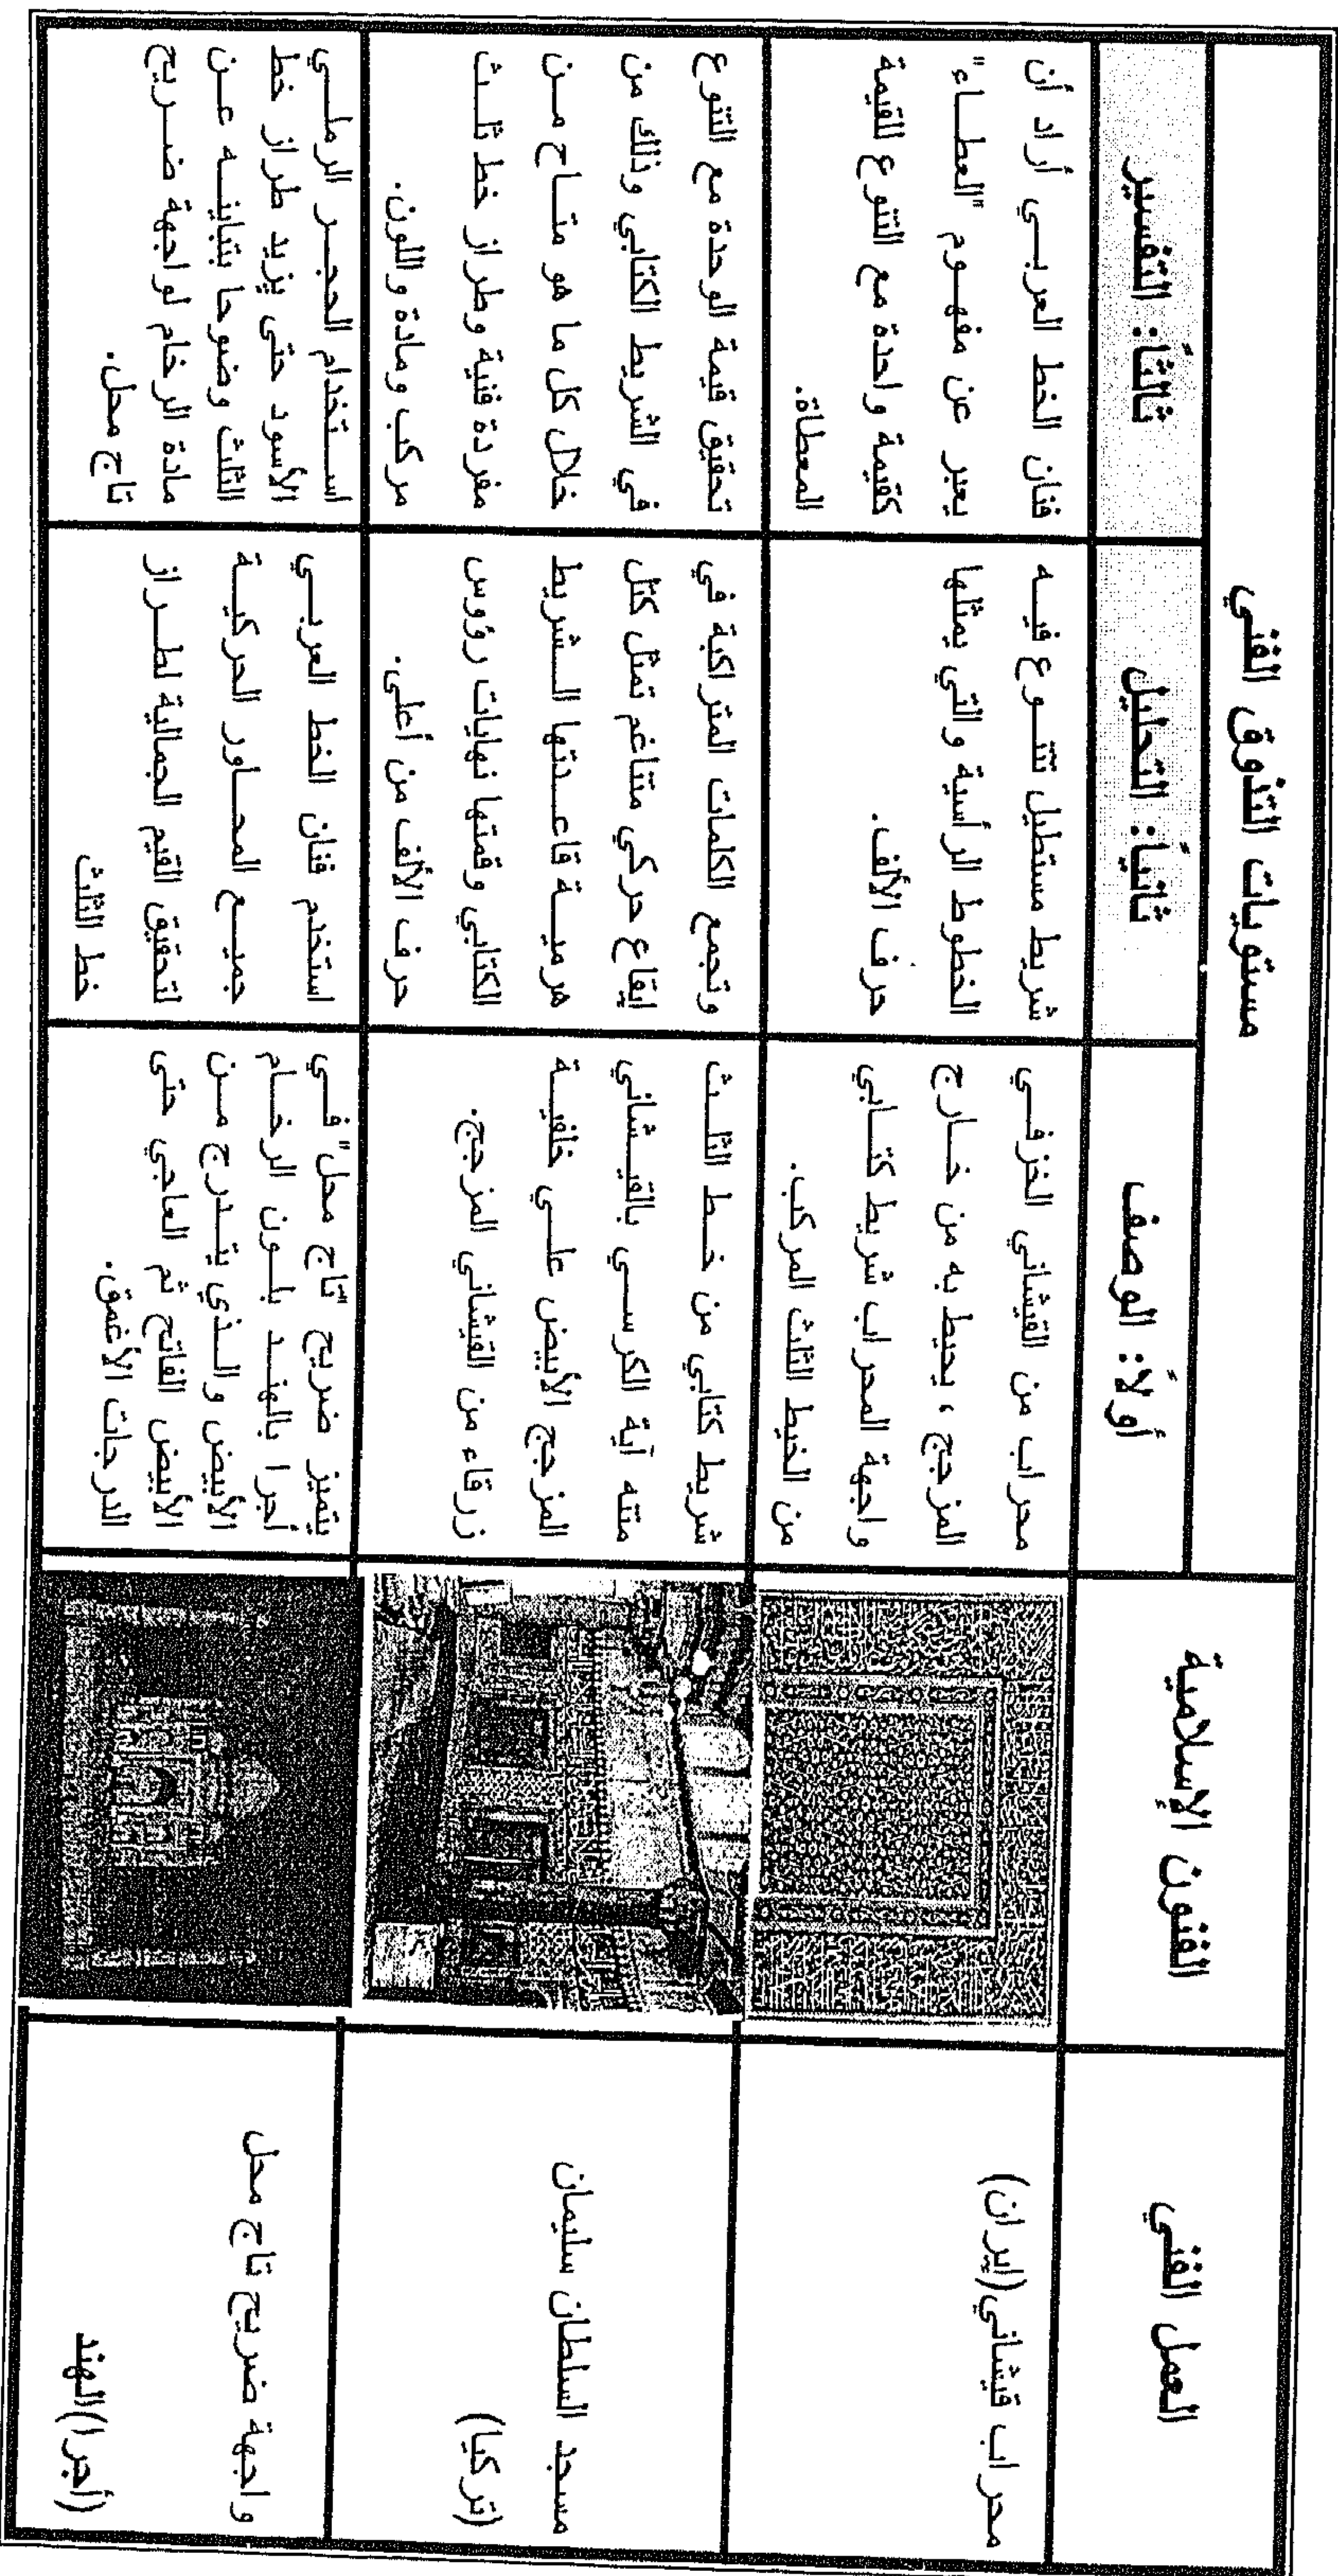 العمل الفني
الفنون الإسلامية
مستويات التذوق الفني
أولاً: الوصف
ثانياً: التحليل
ثالثاً: التفسير
محراب قيشاني(إيران)
محراب من القيشاني الخزفي
المزجج ، يحيط به من خارج
واجهة المحراب شريط كتابي
من الخيط الثلث المركب.
شريط مستطيل تتنوع فيه
الخطوط الرأسية والتي يمثلها
حرف الألف.
فنان الخط العربي أراد أن
يعبر عن مفهوم "العطاء"
كقيمة واحدة مع التنوع للقيمة
المعطاة.
مسجد السلطان سليمان
(تركيا)
شريط كتابي من خط الثلث
متنه آية الكرسي بالقيشاني
المزجج الأبيض على خلفية
زرقاء من القيشاني المزجج.
وتجمع الكلمات المتراكبة في
إيقاع حركي متناغم تمثل كتل
هرمية قاعدتها الشريط
الكتابي وقمتها نهايات رؤوس
حرف الألف من أعلى.
تحقيق قيمة الوحدة مع التنوع
في الشريط الكتابي وذلك من
خلال كل ما هو متاح من
مفردة فنية وطراز خط ثلث
مركب ومادة واللون.
واجهة ضريح تاج محل
(أجرا)الهند
يتميز ضريح "تاج محل" في
أجرا بالهند بلون الرخام
الأبيض والذي يتدرج من
الأبيض الفاتح ثم العاجي حتى
الدرجات الأغمق.
استخدم فنان الخط العربي
جميع المحاور الحركية
لتحقيق القيم الجمالية لطراز
خط الثلث
استخدام الحجر الرملي
الأسود حتى يزيد طراز خط
الثلث وضوحا بتباينه عن
مادة الرخام لواجهة ضريح
تاج محل.